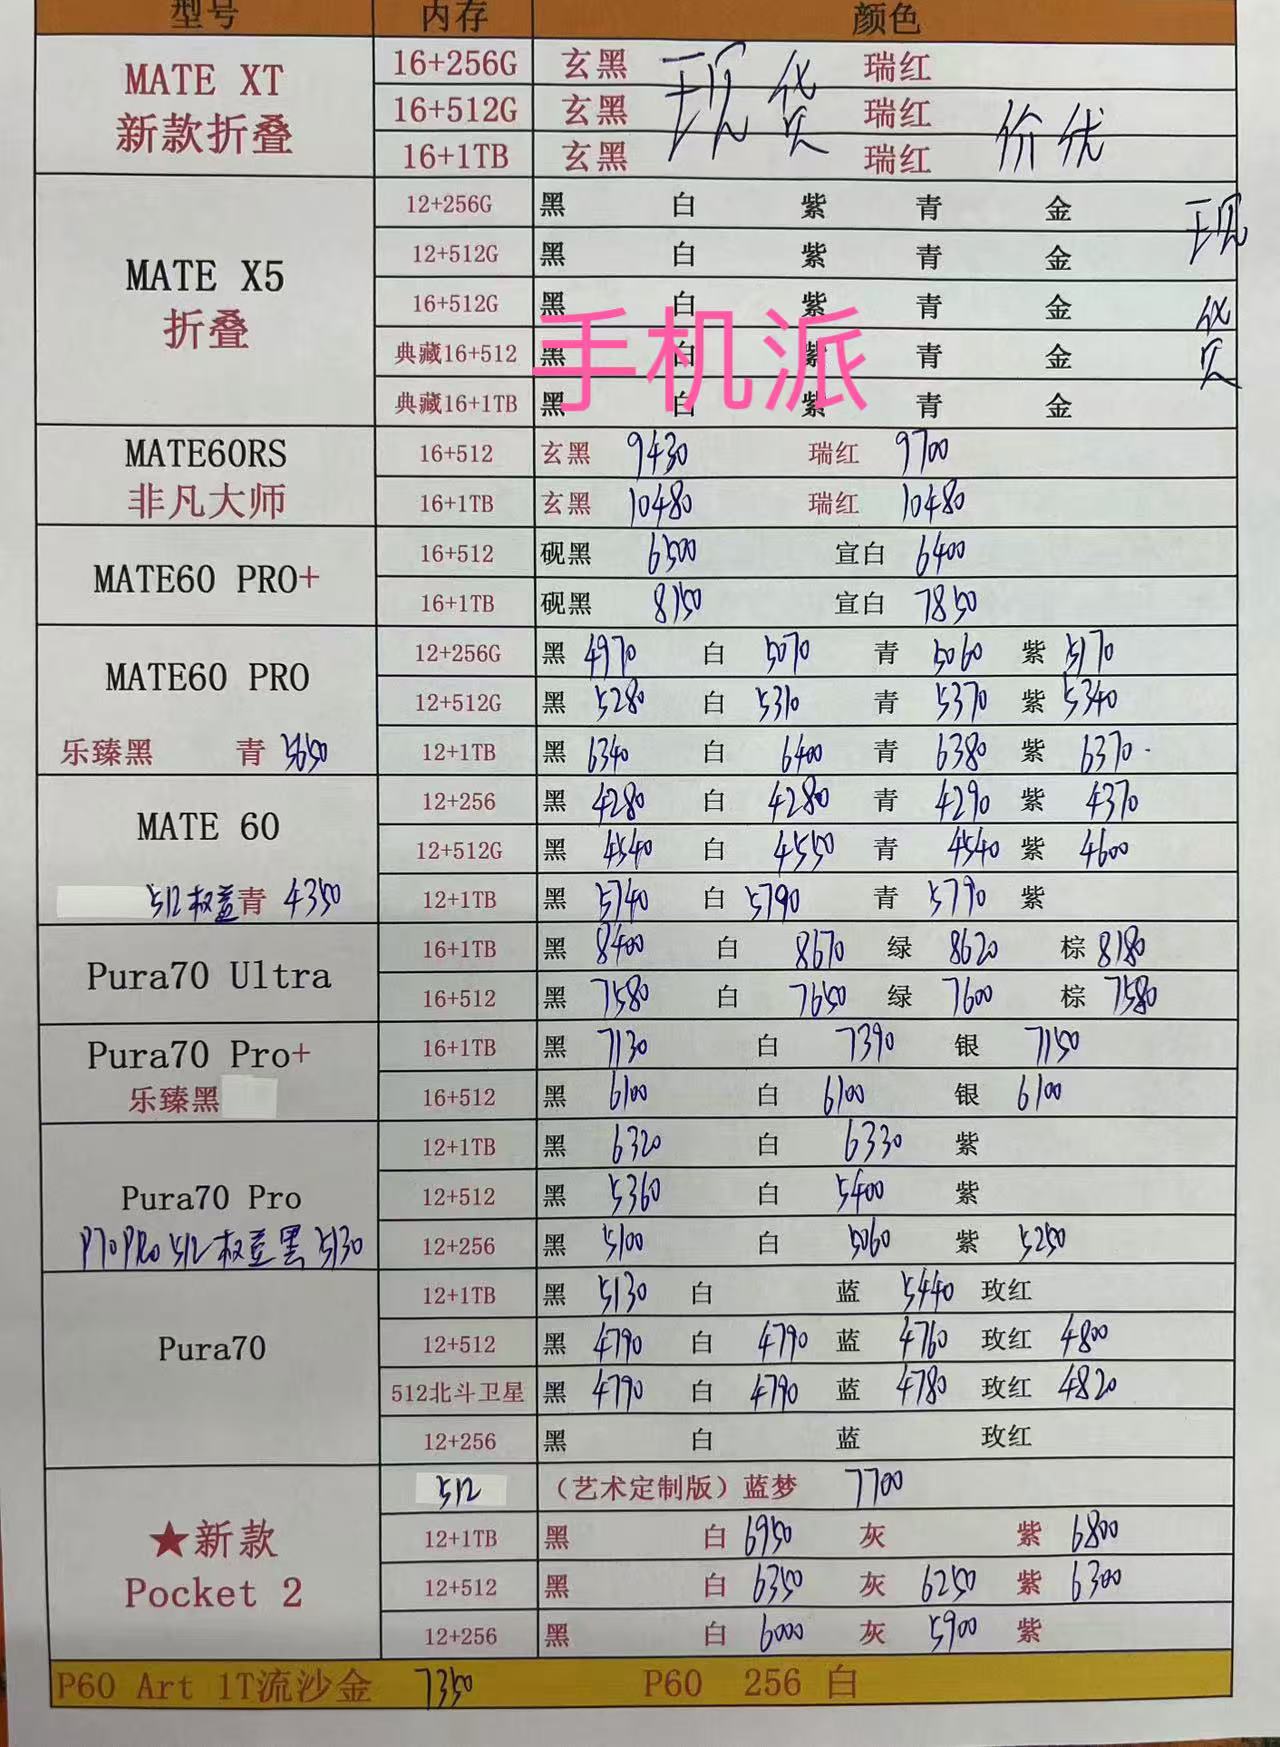 型号 内存 颜色
MATE XT 新款折叠 16+256G 玄黑 瑞红
16+512G 玄黑 瑞红
16+1TB 玄黑 瑞红
现货 价优
MATE X5 折叠 12+256G 黑 白 紫 青 金
12+512G 黑 白 紫 青 金
16+512G 黑 白 紫 青 金
典藏16+512 黑 白 紫 青 金
典藏16+1TB 黑 白 紫 青 金
现货
手机派
MATE60RS 非凡大师 16+512 玄黑 9430 瑞红 9700
16+1TB 玄黑 10480 瑞红 10480
MATE60 PRO+ 16+512 砚黑 6500 宣白 6400
16+1TB 砚黑 8150 宣白 7850
MATE60 PRO 12+256G 黑 4970 白 5070 青 5060 紫 5170
12+512G 黑 5280 白 5310 青 5370 紫 5340
乐臻黑 青 5650 12+1TB 黑 6340 白 6400 青 6380 紫 6370
MATE 60 12+256 黑 4280 白 4280 青 4290 紫 4370
12+512G 黑 4540 白 4550 青 4540 紫 4600
512权益青 4350 12+1TB 黑 5740 白 5790 青 5790 紫
Pura70 Ultra 16+1TB 黑 8400 白 8670 绿 8620 棕 8180
16+512 黑 7580 白 7650 绿 7600 棕 7580
Pura70 Pro+ 16+1TB 黑 7130 白 7390 银 7150
乐臻黑 16+512 黑 6100 白 6100 银 6100
Pura70 Pro 12+1TB 黑 6320 白 6330 紫
12+512 黑 5360 白 5400 紫
P70PRO 512权益黑 5130 12+256 黑 5100 白 5060 紫 5250
Pura70 12+1TB 黑 5130 白 蓝 5440 玫红
12+512 黑 4790 白 4790 蓝 4760 玫红 4800
512北斗卫星 黑 4790 白 4790 蓝 4780 玫红 4820
12+256 黑 白 蓝 玫红
★新款 Pocket 2 512 （艺术定制版）蓝梦 7700
12+1TB 黑 白 6950 灰 紫 6800
12+512 黑 白 6350 灰 6250 紫 6300
12+256 黑 白 6000 灰 5900 紫
P60 Art 1T流沙金 7350 P60 256 白